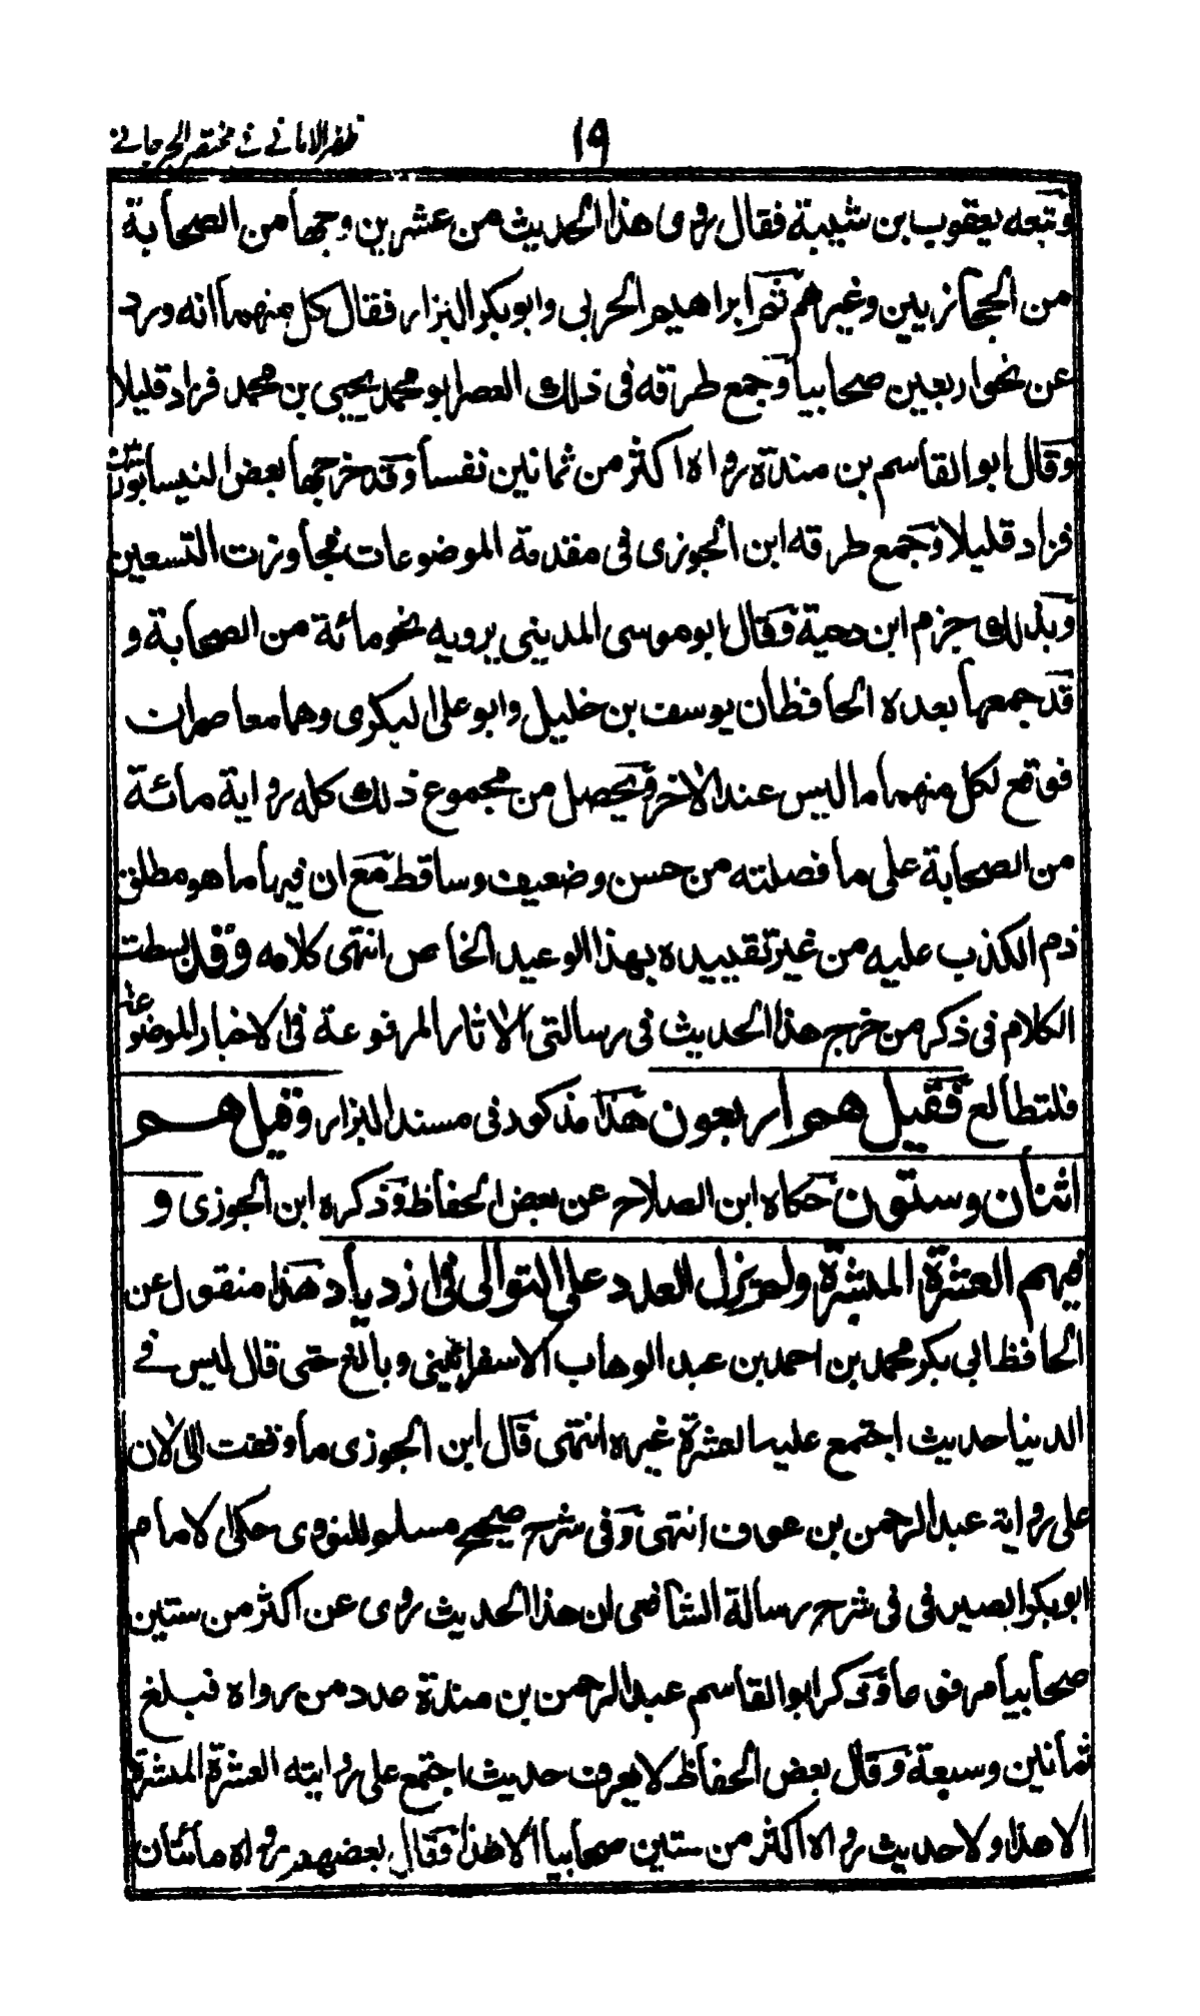 ١٩
ظفر الامانے فے مختصر الجرجانے
وتبعه يعقوب بن شيبة فقال روى هذا الحديث من عشرين وجها من الصحابة
من الحجازيين وغيرهم ثم ابراهيم الحربى وابو بكر البزار فقال كل منهما انه ورد
عن نحو اربعين صحابيا وجمع طرقه فى ذلك العصر ابو محمد يحيى بن محمد فزاد قليلا
وقال ابو القاسم بن مندة رواه اكثر من ثمانين نفسا وقد خرجها بعض النيسابوريين
فزاد قليلا وجمع طرقه ابن الجوزى فى مقدمة الموضوعات فجاوزت التسعين
وبذلك جزم ابن دحية وقال ابو موسى المدينى يرويه نحو مائة من الصحابة و
قد جمعها بعده الحافظان يوسف بن خليل وابو على البكرى وهما معاصران
فوقع لكل منهما ما ليس عند الاخر وتحصل من مجموع ذلك كله رواية مائة
من الصحابة على ما فصلته من حسن وضعيف وساقط مع ان فيها ما هو مطلق
ذم الكذب عليه من غير تقييده بهذا الوعيد الخاص انتهى كلامه وقد بسطت
الكلام فى ذكر من خرج هذا الحديث فى رسالتى الاثار المرفوعة فى الاخبار الموضوعة
فلتطالع فقيل هم اربعون هذا مذكور فى مسند البزار وقيل هم
اثنان وستون حكاه ابن الصلاح عن بعض الحفاظ وذكره ابن الجوزى و
فيهم العشرة المبشرة ولم يزل العدد على التوالى فى ازدياد هذا منقول عن
الحافظ ابى بكر محمد بن احمد بن عبد الوهاب الاسفرائينى وبالغ حتى قال ليس فے
الدنيا حديث اجتمع عليه العشرة غيره انتهى قال ابن الجوزى ما وقفت الى الان
على رواية عبد الرحمن بن عوف انتهى وفى شرح صحيح مسلم للنووى حكى الامام
ابو بكر الصيرفى فى شرح رسالة الشافعى ان هذا الحديث روى عن اكثر من ستين
صحابيا مرفوعا وذكر ابو القاسم عبد الرحمن بن مندة عدد من رواه فبلغ
ثمانين وسبعة وقال بعض الحفاظ لا يعرف حديث اجتمع على روايته العشرة المبشرة
الا هذا ولا حديث رواه اكثر من ستين صحابيا الا هذا فقال بعضهم رواه مائتان